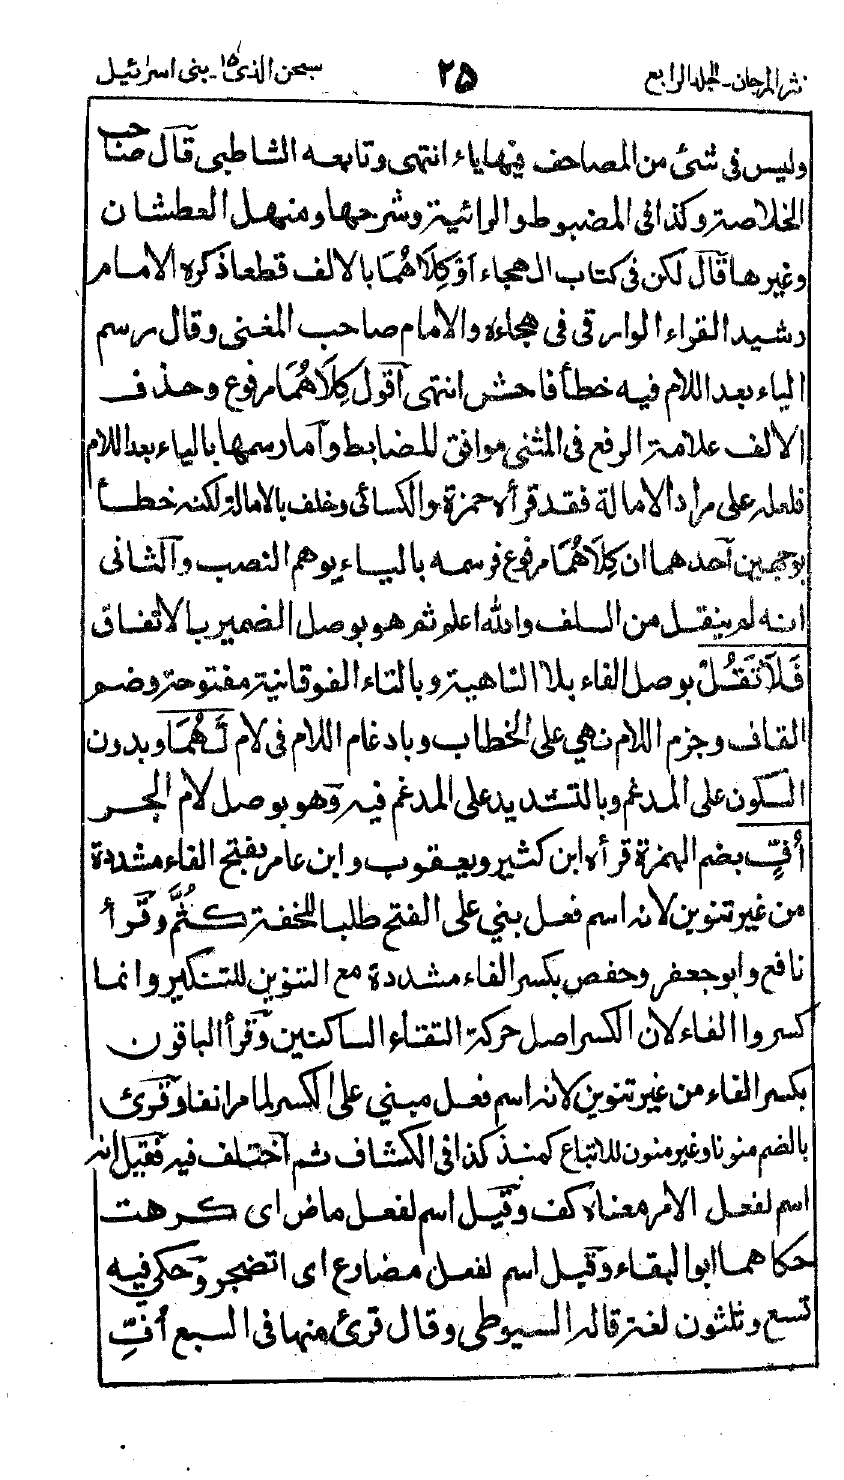 نثر المرجان - الجلد الرابع ٢٥ سبحن الذی ١٥ - بنی اسرائیل
ولیس فی شیٔ من المصاحف فیها یاء انتهی وتابعه الشاطبی قال صاحب
الخلاصة وکذا فی المضبوط والرائیة وشرحها ومنهل العطشان
وغیرها قال لکن فی کتاب الهجاء اَوْ کِلَاهُمَا بالالف قطعا ذکره الامام
رشید القراء الوارقی فی هجاءه والامام صاحب المغنی وقال رسم
الیاء بعد اللام فیه خطأ فاحش انتهی آقول کِلَاهُمَا مرفوع وحذف
الالف علامة الرفع فی المثنی موافق للضابط وآما رسمها بالیاء بعد اللام
فلعله علی مراد الامالة فقد قرأه حمزة والکسائی وخلف بالامالة لکنه خطأ
بوجهین آحدهما ان کِلَاهُمَا مرفوع فرسمه بالیاء یوهم النصب وآلثانی
انه لم ینقل من السلف والله اعلم ثم هو بوصل الضمیر بالاتفاق
فَلَا تَقُلْ بوصل الفاء بلا الناهیة وبالتاء الفوقانیة مفتوحة وضم
القاف وجزم اللام نهی علی الخطاب وبادغام اللام فی لام لَّهُمَا وبدون
السکون علی المدغم وبالتشدید علی المدغم فیه وهو بوصل لام الجر
أُفٍّ بضم الهمزة قرأه ابن کثیر ویعقوب وابن عامر بفتح الفاء مشددة
من غیر تنوین لانه اسم فعل بنی علی الفتح طلبا للخفة کَثُمَّ وقرأ
نافع وابوجعفر وحفص بکسر الفاء مشددة مع التنوین للتنکیر وانما
کسروا الفاء لان الکسر اصل حرکة التقاء الساکنین وقرأ الباقون
بکسر الفاء من غیر تنوین لانه اسم فعل مبنی علی الکسر لما مر انفا وقرئ
بالضم منونا وغیر منون للاتباع کمنذ کذا فی الکشاف ثم آختلف فیه فقیل انه
اسم لفعل الامر معناه کف وقیل اسم لفعل ماض ای کرهت
حکاهما ابو البقاء وقیل اسم لفعل مضارع ای اتضجر وحکی فیه
تسع وثلثون لغة قاله السیوطی وقال قرئ منها فی السبع أُفِّ